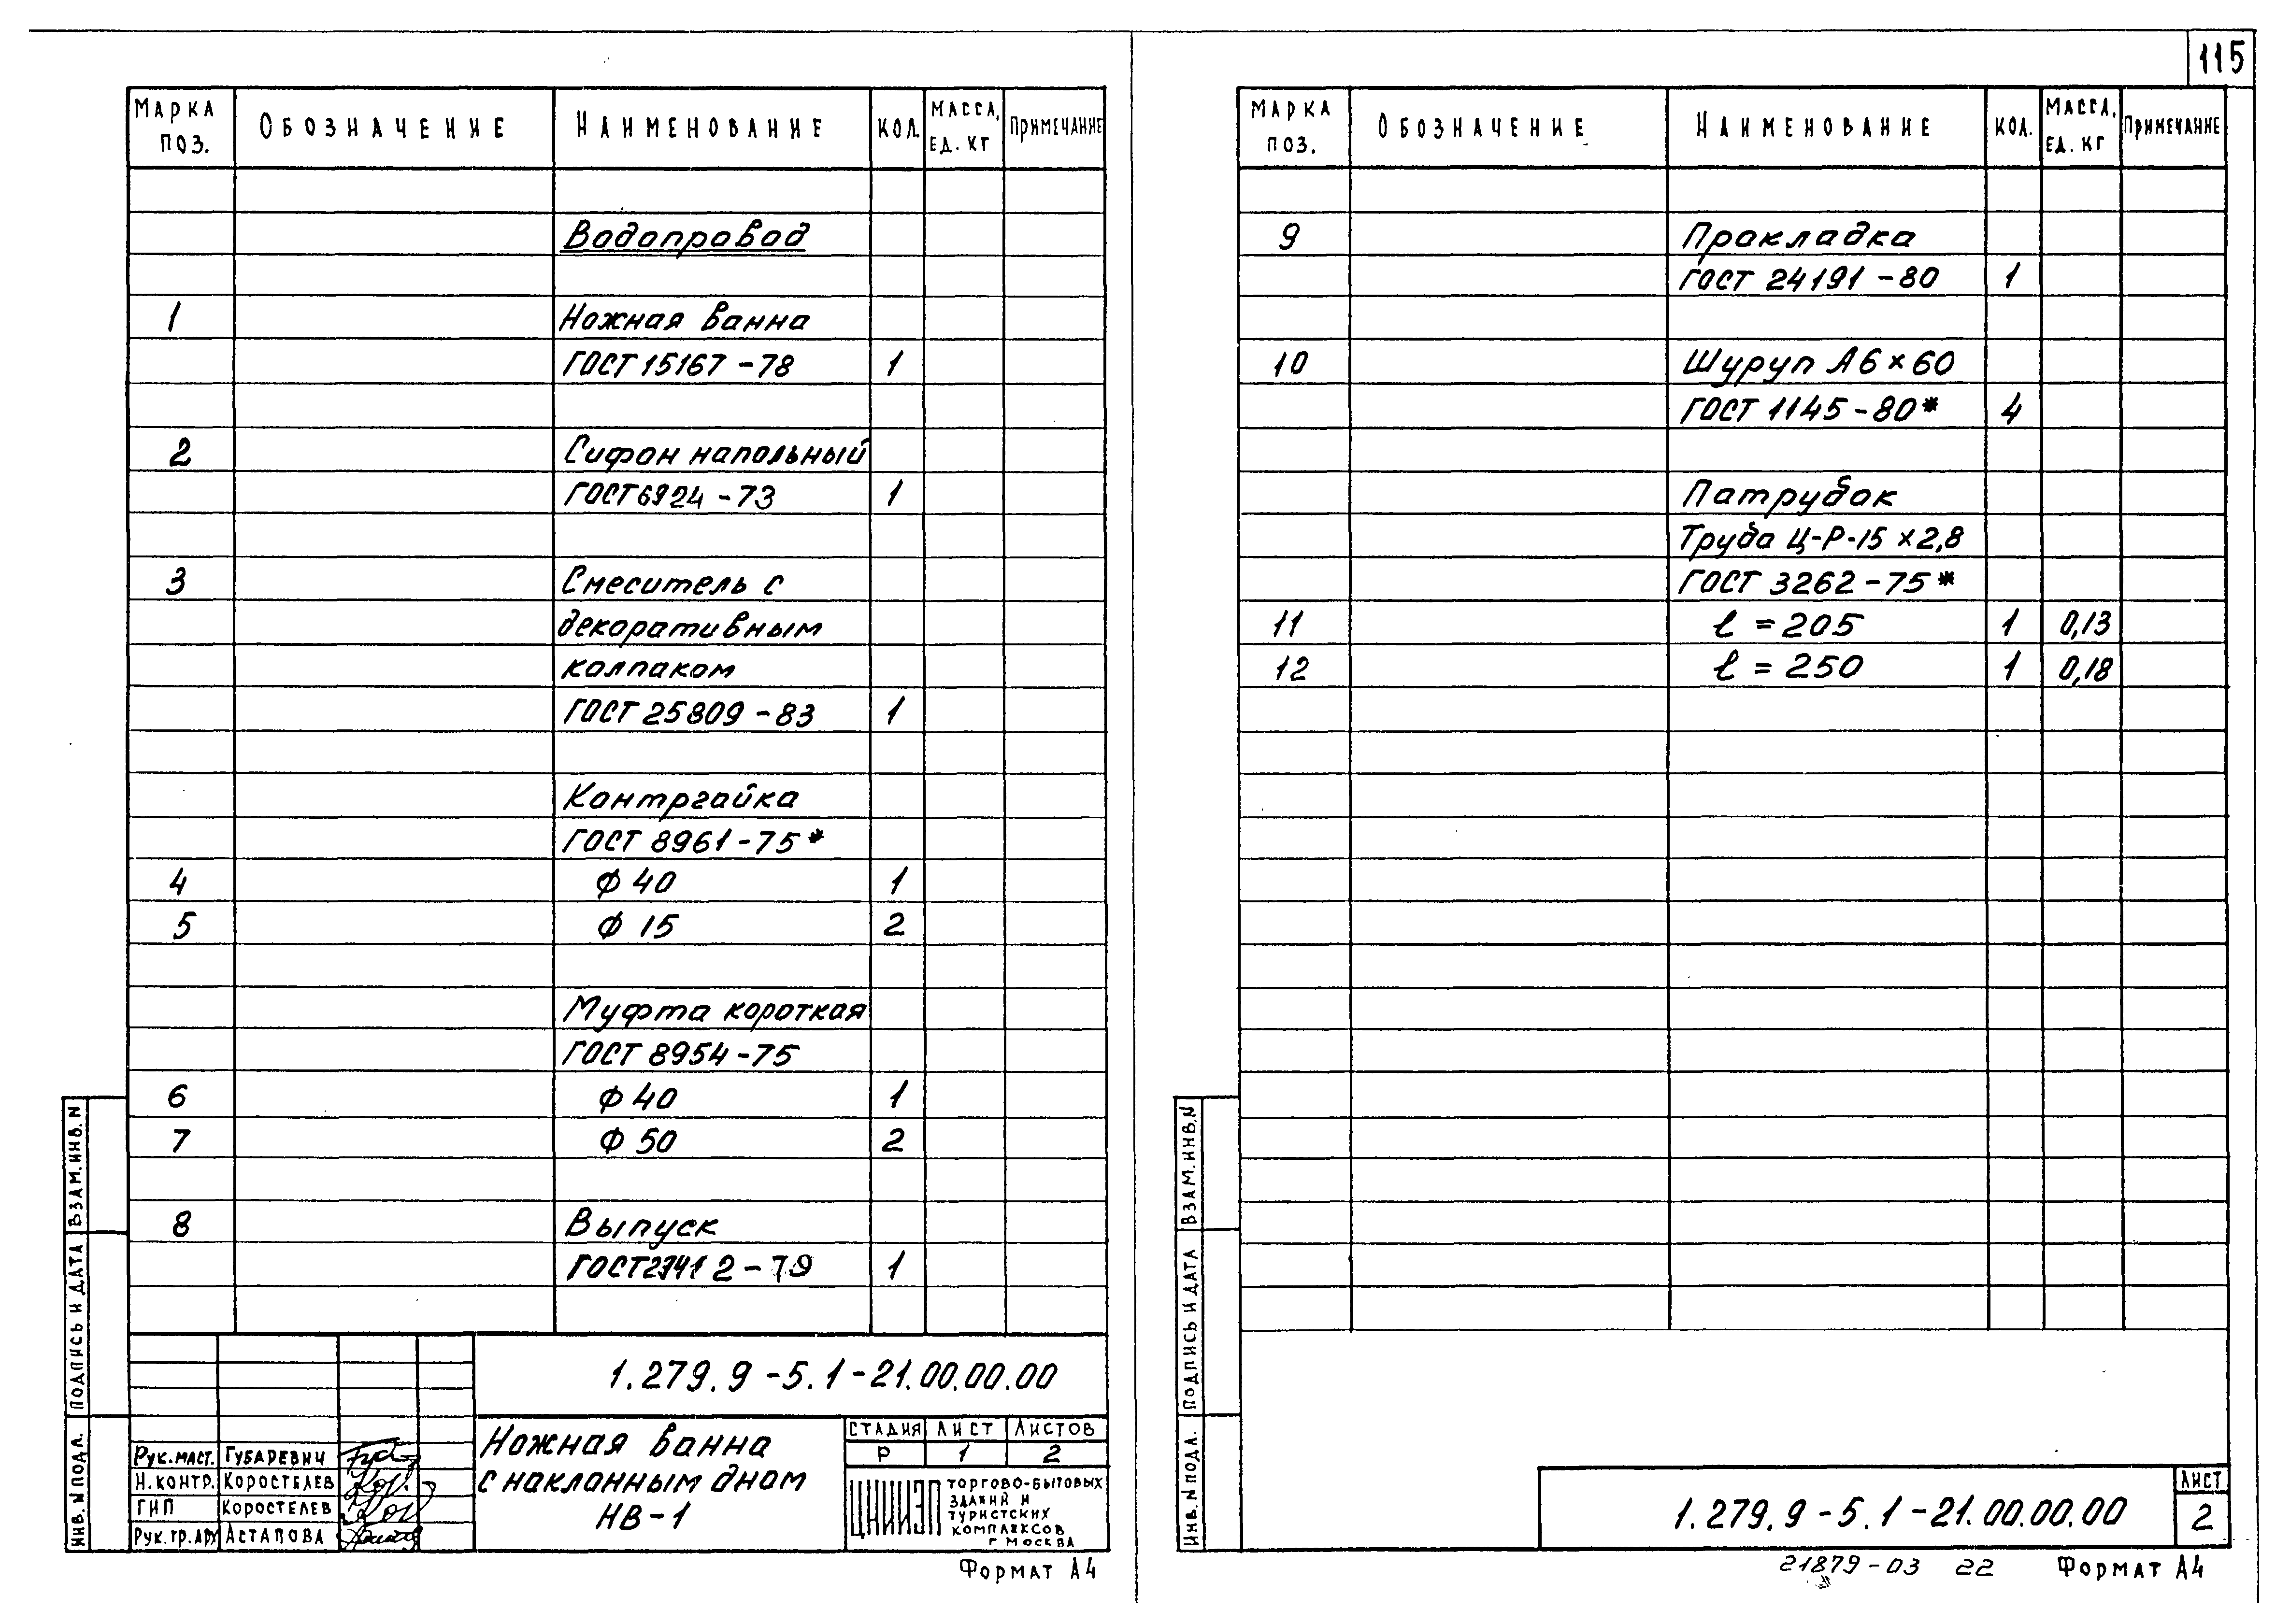 115
МАРКА ПОЗ. ОБОЗНАЧЕНИЕ НАИМЕНОВАНИЕ КОЛ. МАССА, ЕД. КГ ПРИМЕЧАНИЕ
Водопровод
1 Ножная ванна
ГОСТ 15167-78 1
2 Сифон напольный
ГОСТ 6924-73 1
3 Смеситель с
декоративным
колпаком
ГОСТ 25809-83 1
Контргайка
ГОСТ 8961-75*
4 Ф 40 1
5 Ф 15 2
Муфта короткая
ГОСТ 8954-75
6 Ф 40 1
7 Ф 50 2
8 Выпуск
2-79 1
1.279.9-5.1-21.00.00.00
Ножная ванна
с наклонным дном
НВ-1
СТАДИЯ ЛИСТ ЛИСТОВ
Р 1 2
ЦНИИЭП ТОРГОВО-БЫТОВЫХ
ЗДАНИЙ И
ТУРИСТСКИХ
КОМПЛЕКСОВ
Г МОСКВА
РУК.МАСТ. ГУБАРЕВИЧ
Н.КОНТР. КОРОСТЕЛЕВ
ГИП КОРОСТЕЛЕВ
РУК.ГР.АРХ АСТАПОВА
ВЗАМ.ИНВ.N
ПОДПИСЬ И ДАТА
ИНВ.N ПОДЛ.
ФОРМАТ А4
МАРКА ПОЗ. ОБОЗНАЧЕНИЕ НАИМЕНОВАНИЕ КОЛ. МАССА, ЕД. КГ ПРИМЕЧАНИЕ
9 Прокладка
ГОСТ 24191-80 1
10 Шуруп А6×60
ГОСТ 1145-80* 4
Патрубок
Труба Ц-Р-15×2,8
ГОСТ 3262-75*
11 ℓ = 205 1 0,13
12 ℓ = 250 1 0,18
ВЗАМ.ИНВ.N
ПОДПИСЬ И ДАТА
ИНВ.N ПОДЛ.
1.279.9-5.1-21.00.00.00
ЛИСТ
2
21879-03 22 ФОРМАТ А4